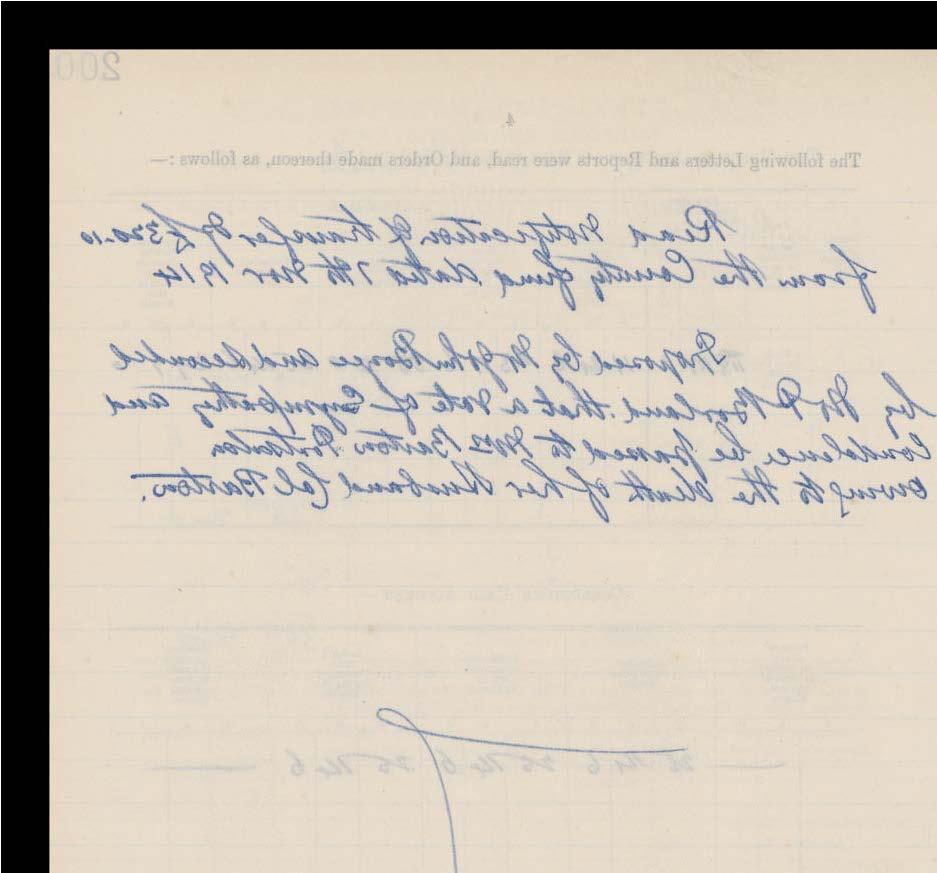 200
4
The following Letters and Reports were read, and Orders made thereon, as follows :—
Read Notification of transfer of £320.10
from the County fund dated 7th Nov 1914
Proposed by Mr John Boyce and seconded
by Mr P Borland that a vote of Sympathy and
Condolence be passed to Mrs Barton Portsalon
owing to the death of her Husband Col Barton.
26 14 6 26 14 6 26 14 6